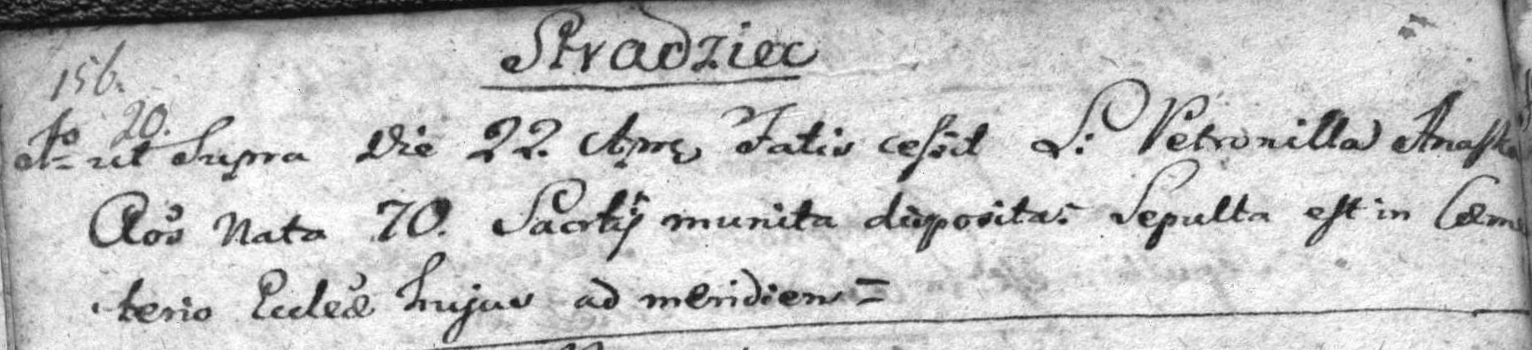 Stradziec
156.
20.
Ao ut Supra die 22. Apr Fatis cessit L: Petronilla
Aos Nata 70. Sacrtis munita disposita: Sepulta est in Cæme
terio Eccleæ hujus ad meridiem =